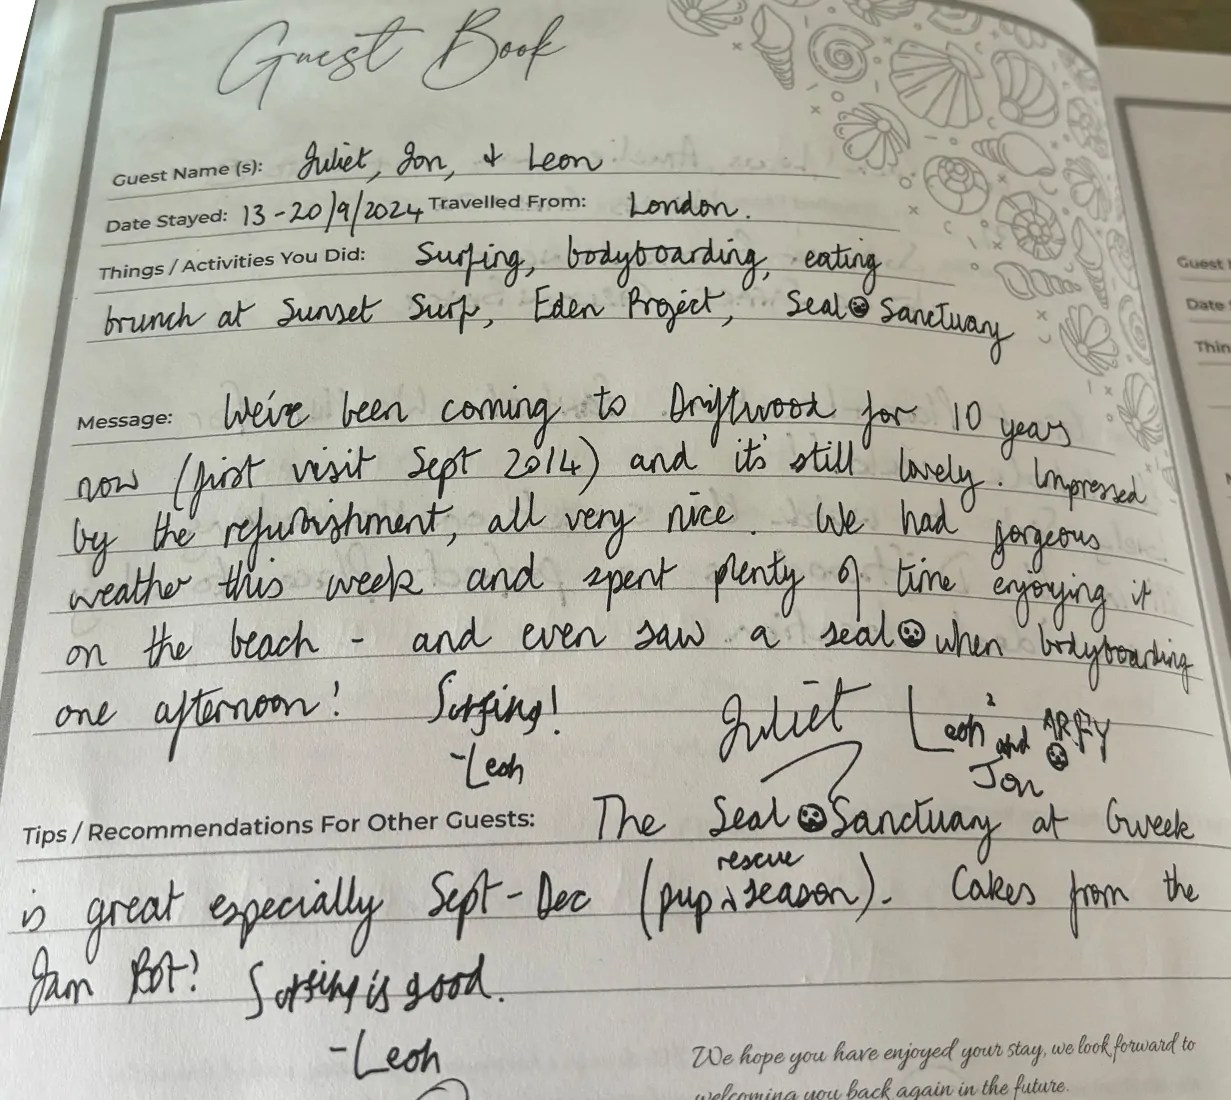 Guest Book
Guest Name (s): Juliet, Jon, & Leon
Date Stayed: 13-20/9/2024 Travelled From: London.
Things / Activities You Did: Surfing, bodyboarding, eating
brunch at Sunset Surf, Eden Project, Seal Sanctuary
Message: We've been coming to Driftwood for 10 years
now (first visit Sept 2014) and it's still lovely. Impressed
by the refurbishment, all very nice. We had gorgeous
weather this week and spent plenty of time enjoying it
on the beach - and even saw a seal when bodyboarding
one afternoon! Surfing! Juliet Leon and ARFY
-Leon Jon
Tips / Recommendations For Other Guests: The Seal Sanctuary at Gweek
is great especially Sept-Dec (pup rescue season). Cakes from the
Jam Pot! Surfing is good.
-Leon
We hope you have enjoyed your stay, we look forward to
welcoming you back again in the future.
Guest
Date
Thin